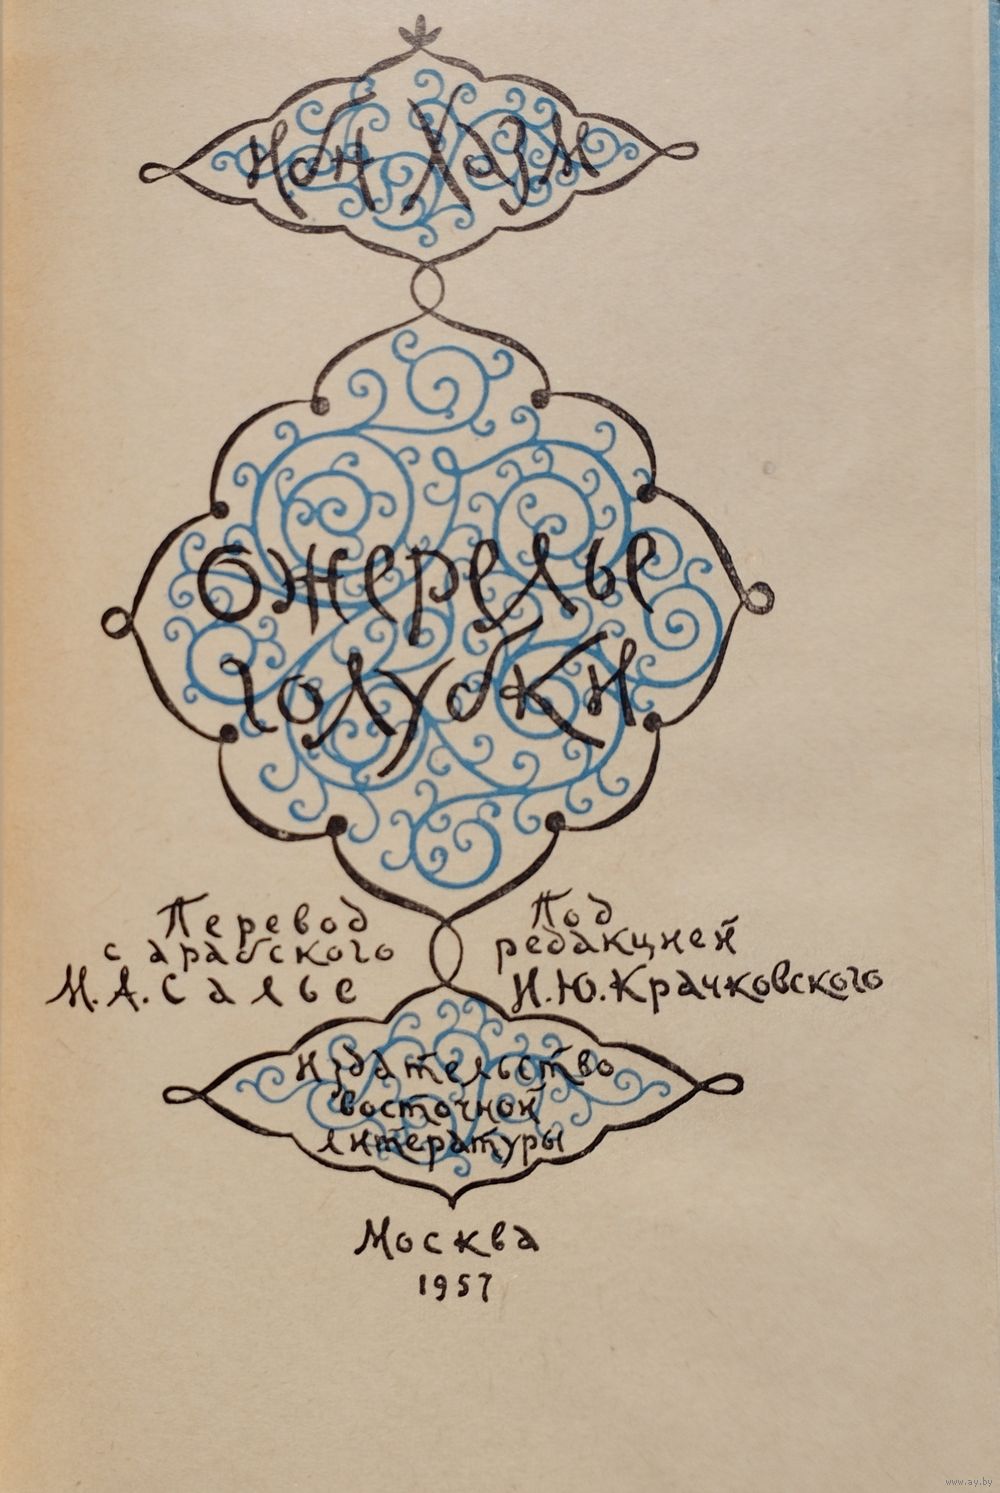 ибн Хазм
ожерелье
голубки
Перевод
с арабского
М. А. Салье
Под
редакцией
И. Ю. Крачковского
издательство
восточной
литературы
Москва
1957
www.ay.by